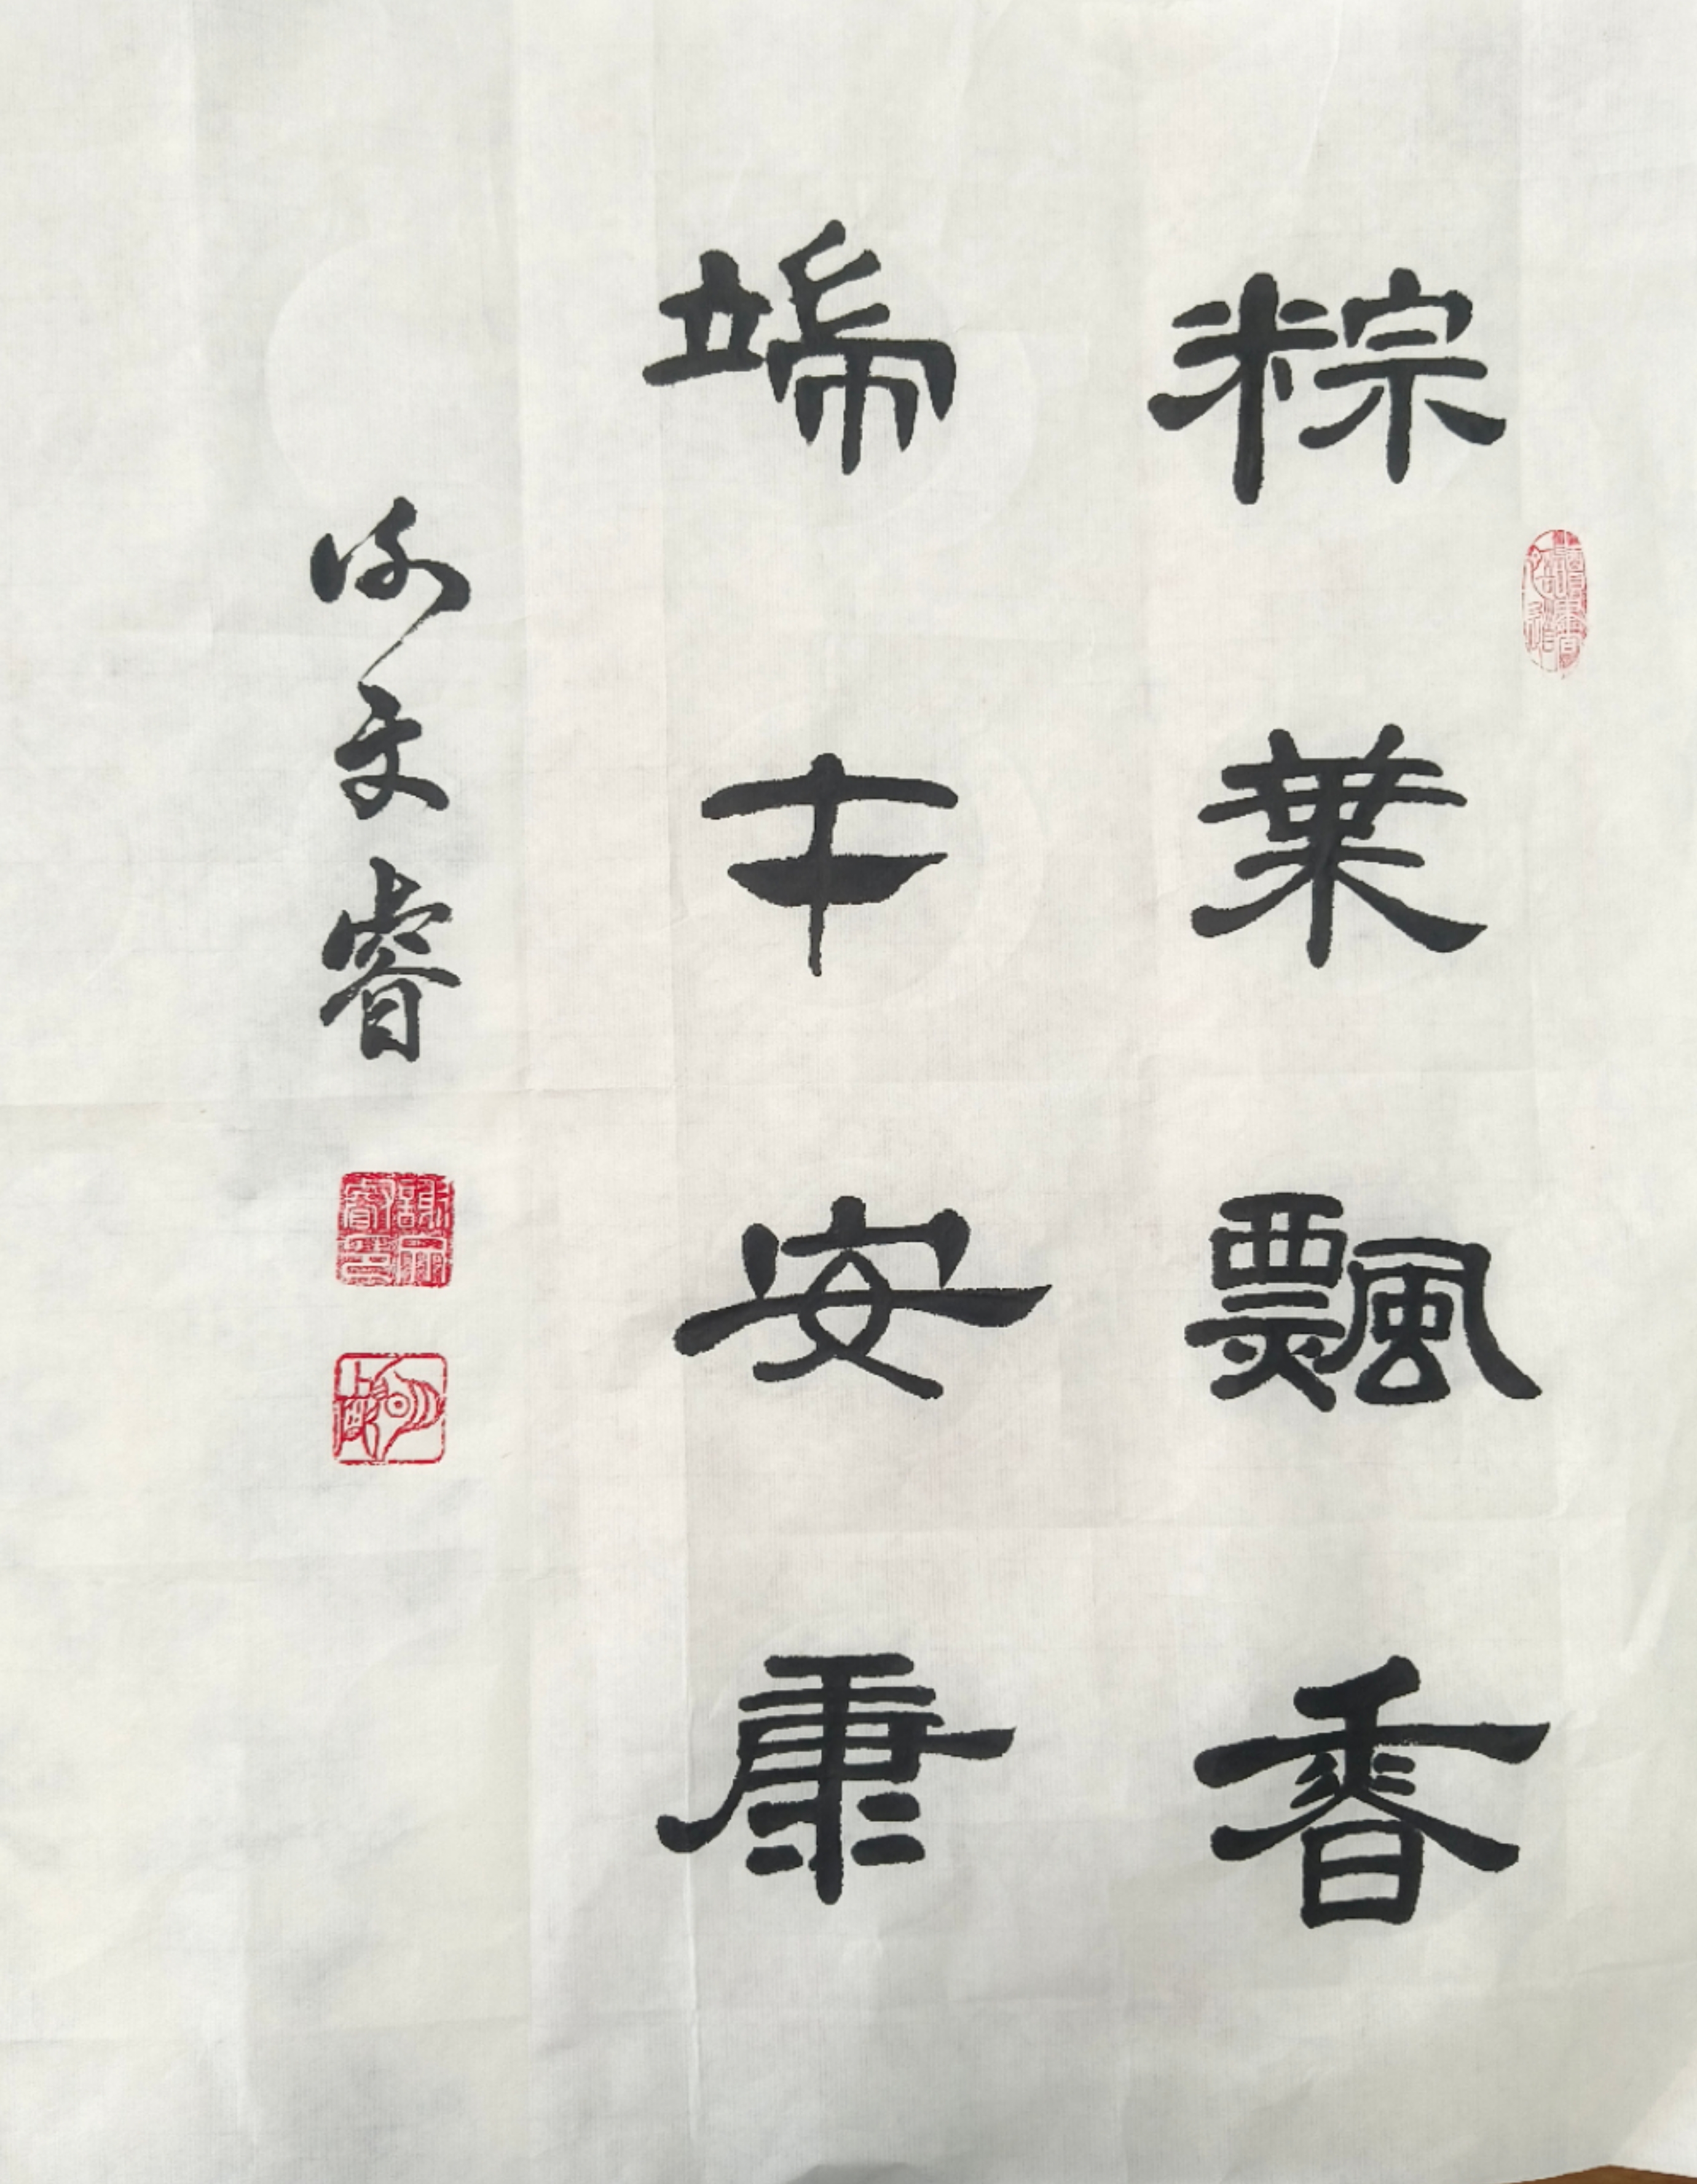 粽葉飄香
端午安康
谢文睿